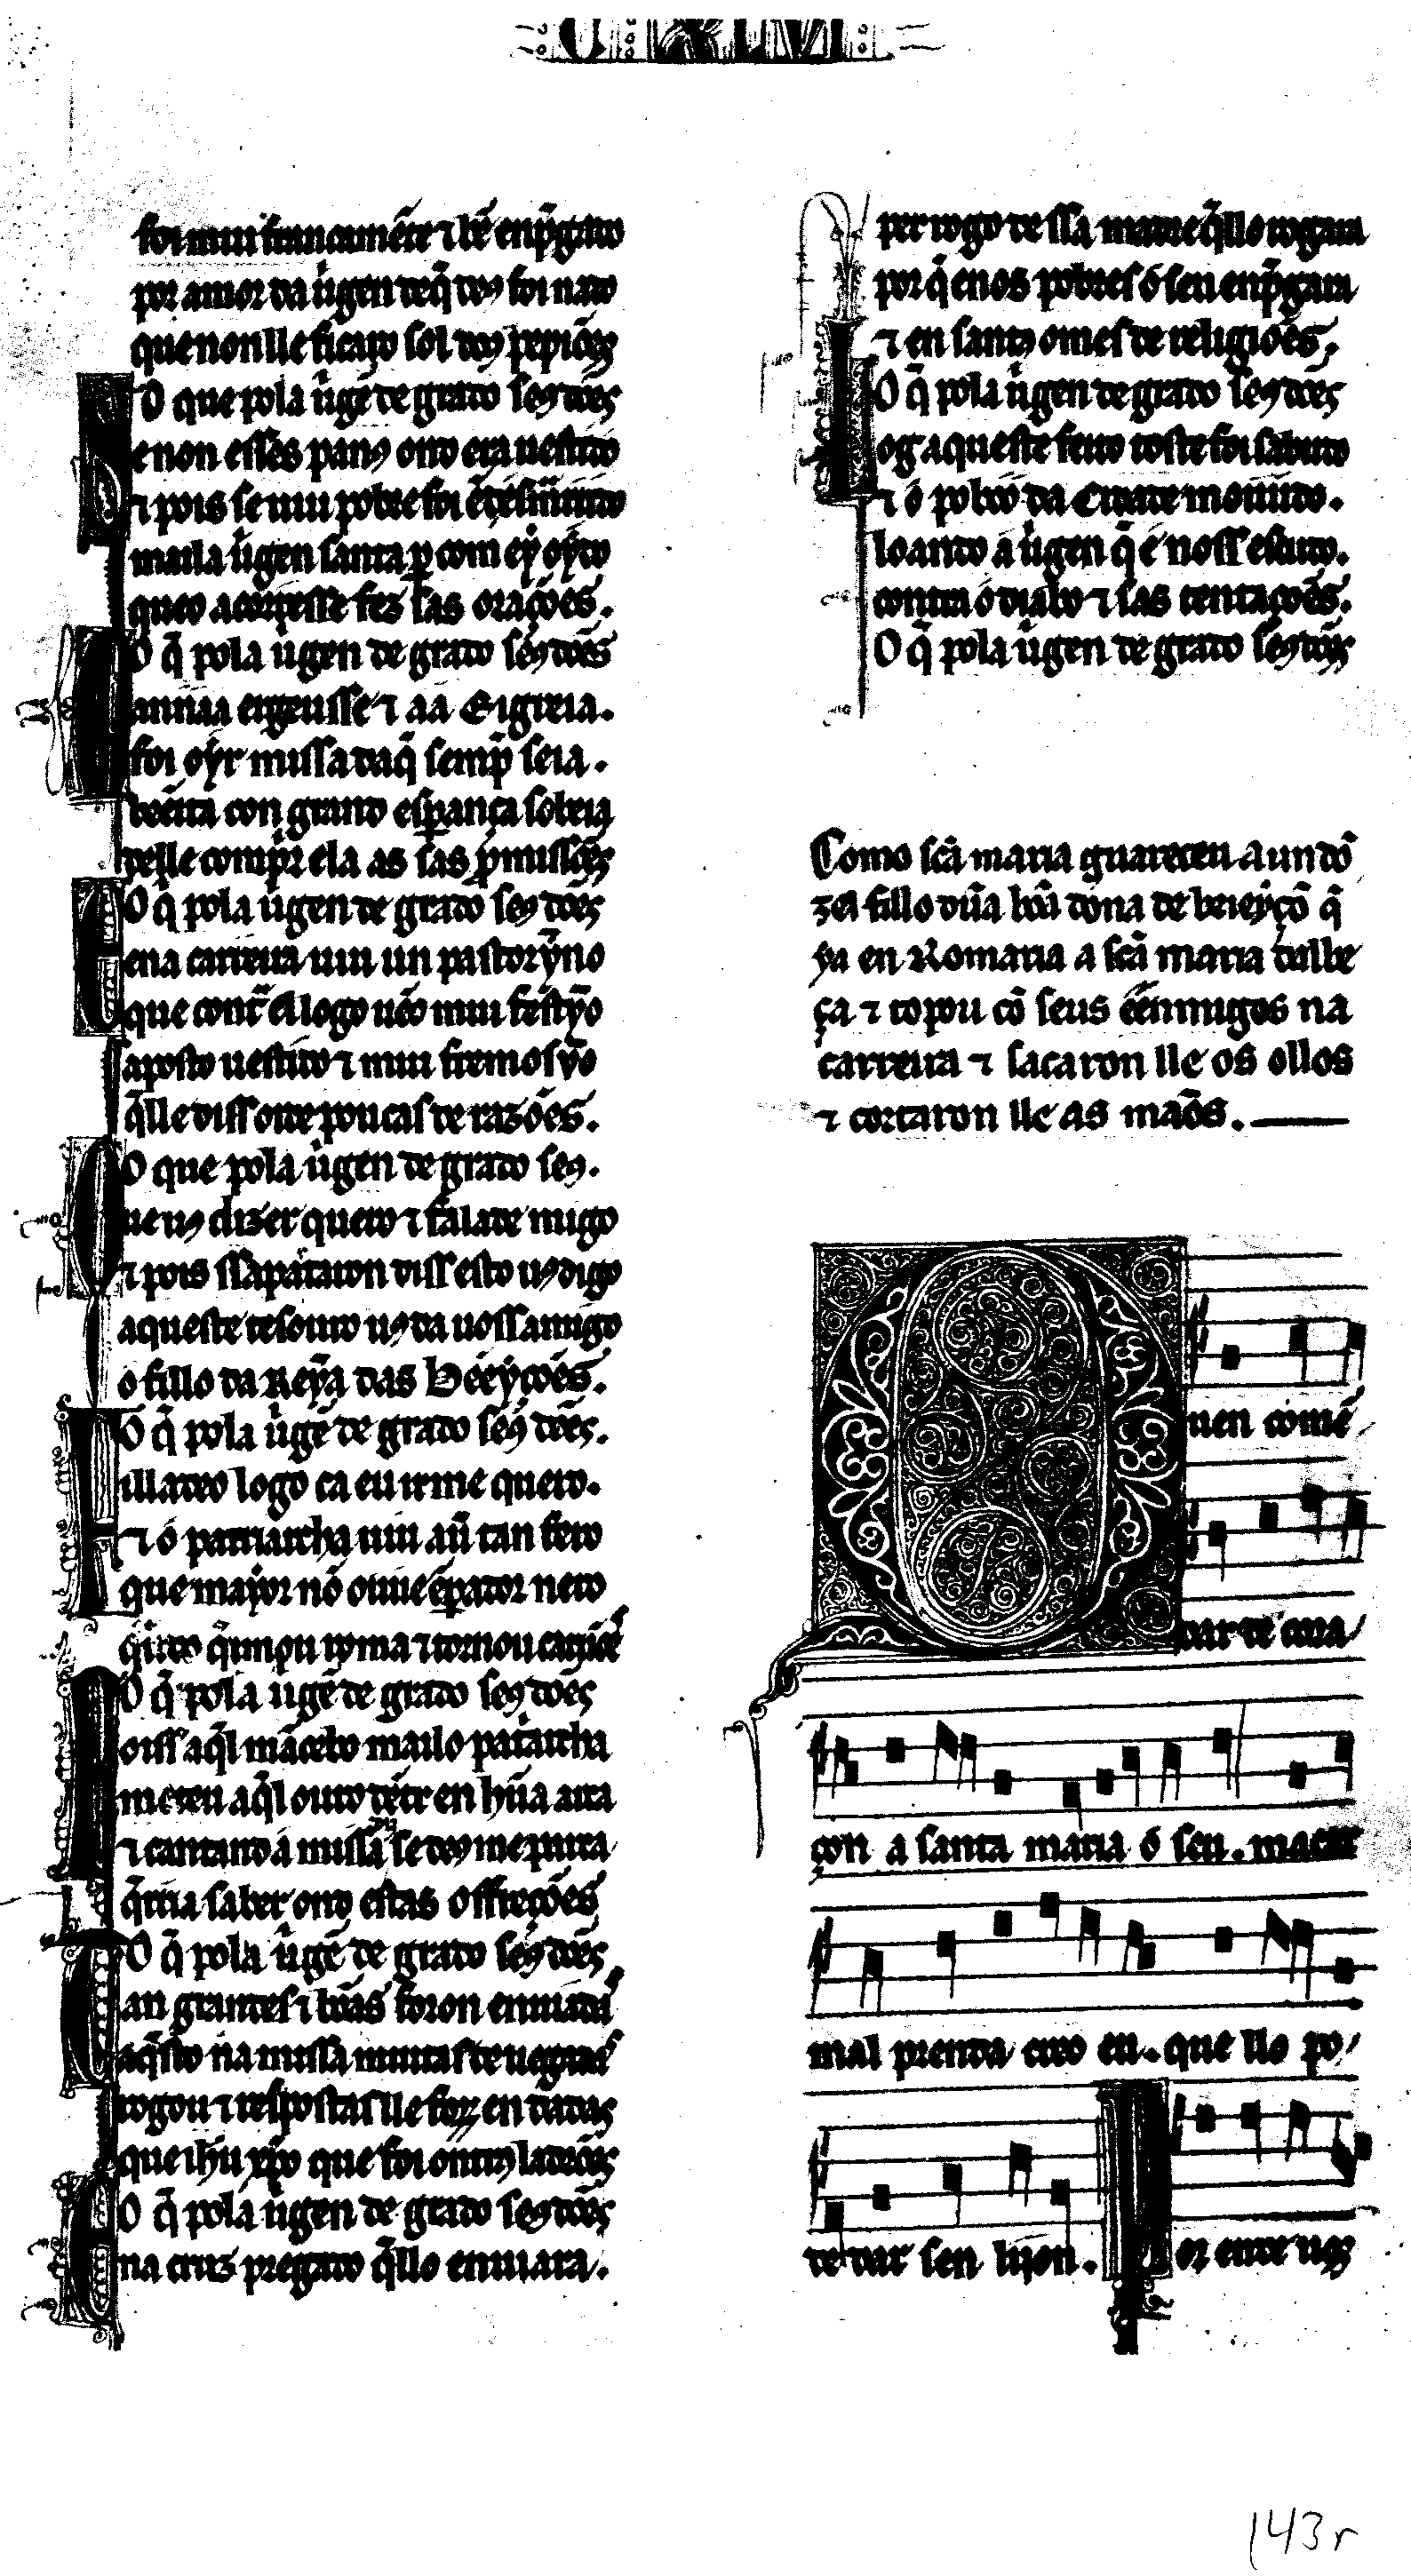 foi mui francamẽte ⁊ bẽ enp̃gado
por amor da uirgen de q̃ deus foi nado
que non lle ficarõ sol dous pepiões
O que pola uirgẽ de grado seus dões
e non esses panos ond era uestido
⁊ pois se uiu pobre foi
mai la uirgen santa per com ey oydo
que o acorresse fez sas orações.
O q̃ pola uirgen de grado seus dões
mannãa ergeusse ⁊ aa Eigreia.
foi oyr missa da q̃ semp̃ seia.
bẽeita con grand esperança sobeia
delle comprir ela as sas promissões
O q̃ pola uirgen de grado seus dões
ena carreira uiu un pastorỹno
que contra el logo uẽo mui festỹo
aposto uestido ⁊ mui fremosỹo
q̃ lle diss oðe poucas de razões.
O que pola uirgen de grado seus.
ue uos dizer quero ⁊ falade migo
⁊ pois ss apartaron diss esto uos digo
aqueste tesouro uos da uoss amigo
o fillo da Reỹa das bẽeyções.
O q̃ pola uirgẽ de grado seus dões.
illadeo logo ca eu irme quero.
⁊ o patriarcha uiu aur̃ tan fero
que mayor nõ ouue ẽperador nero
O q̃ pola uirgẽ de grado seus dões
oiss aq̃l mãcebo mai lo patriarcha
meteu aq̃l ouro dentr en hũa arca
⁊ cantand a missa se deus me parca
q̃ria saber ond estas offreções
O q̃ pola uirgẽ de grado seus dões
an grandes ⁊ bõas foron enuiadas
aq̃sto na missa muitas de uegadas
rogou ⁊ respostas lle foron en dadas
que ihu xp̃o que foi ontr os ladrões
O q̃ pola uirgen de grado seus dões
na cruz pregado q̃ llo enuiara.
per rogo de ssa madre q̃ llo rogara
por q̃ enos pobres o seu enp̃gara
⁊ en santos omes de religiões,
O q̃ pola uirgen de grado seus dões
og aqueste feito toste foi sabudo
⁊ o poboo da Cidade mouudo.
loando a uirgen q̃ é noss escudo.
contra o diabo ⁊ sas tentações.
O q̃ pola uirgen de grado seus dões
Como scã maria guareceu a un dõ
zel fillo dũa bõa dona de beieyçõ q̃
ya en Romaria a scã maria dalbe
ça ⁊ topou cõ seus ẽemigos na
carreira ⁊ sacaron lle os ollos
⁊ cortaron lle as mãos.
Q uen comẽ
dar de cora
çon a santa maria o seu. macar
mal prenda creo eu. que llo po
de dar sen lijon. Por ende uos
143r